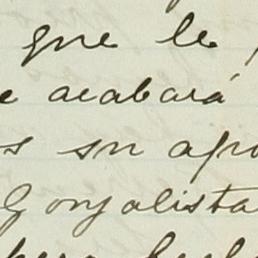 que le
e acabará
s su apo
Gonzalista